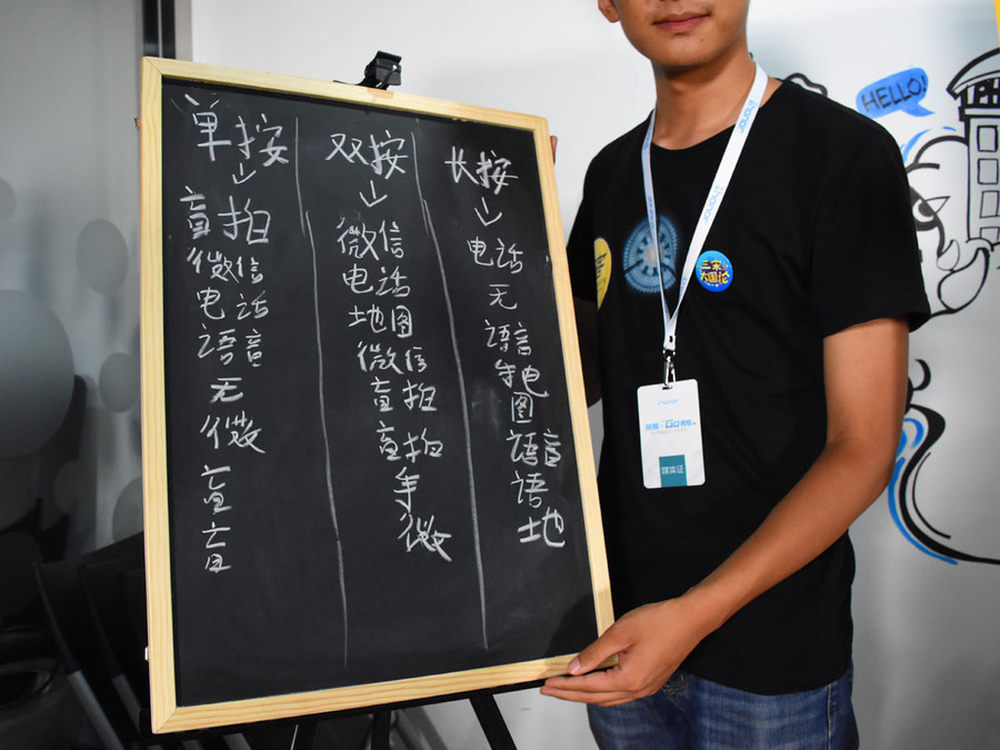 单按
盲拍
微信
电话
语音
无
微
盲
盲
双按
微信
电话
地图
微信
盲拍
盲拍
手
微
长按
电话
无
语音
手电
图
语音
语
土地
HELLO!
honor
honor
三宋
大国论
honor
Go
媒体证